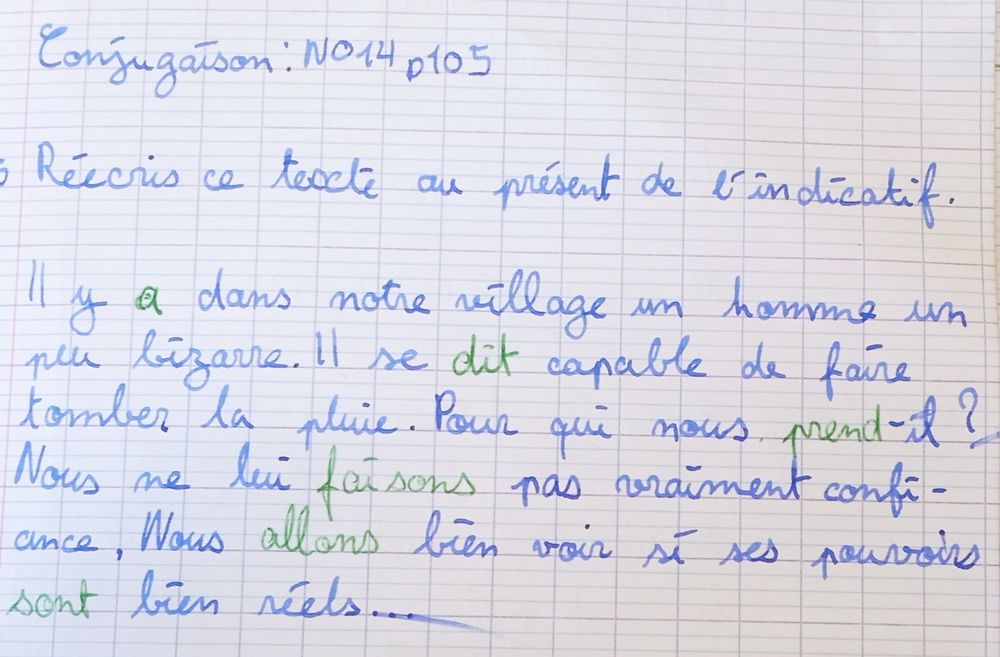 Conjugaison : N014 p105
Réecris ce texte au présent de l'indicatif.
Il y a dans notre village un homme un
peu bizarre. Il se dit capable de faire
tomber la pluie. Pour qui nous prend-il ?
Nous ne lui faisons pas vraiment confi-
ance, Nous allons bien voir si ses pouvoirs
sont bien réels...